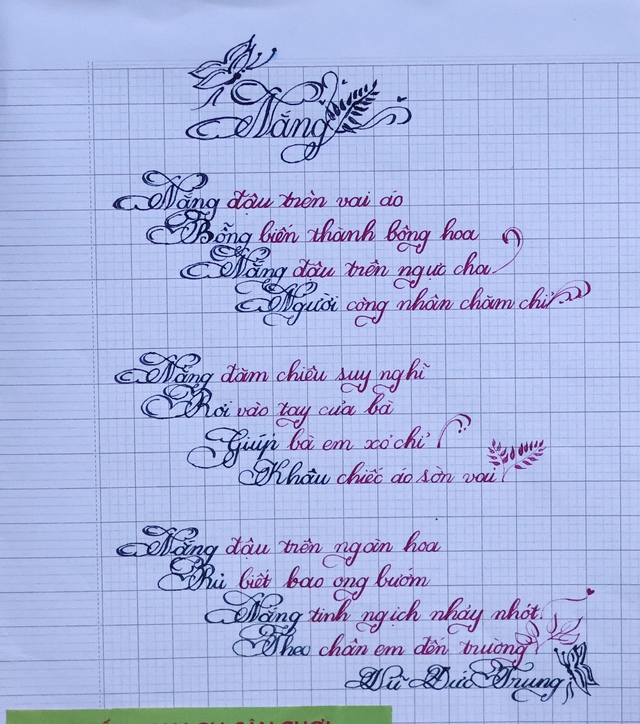 Nắng
Nắng đậu trên vai áo
Bỗng biến thành bông hoa
Nắng đậu trên ngực cha
Người công nhân chăm chỉ
Nắng đăm chiêu suy nghĩ
Rơi vào tay của bà
Giúp bà em xỏ chỉ
Khâu chiếc áo sờn vai
Nắng đậu trên ngàn hoa
Rủ biết bao ong bướm
Nắng tinh nghịch nhảy nhót
Theo chân em đến trường
Vũ Đức Trung